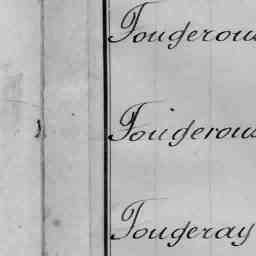 Fougerous
Fougerous
Fougeray